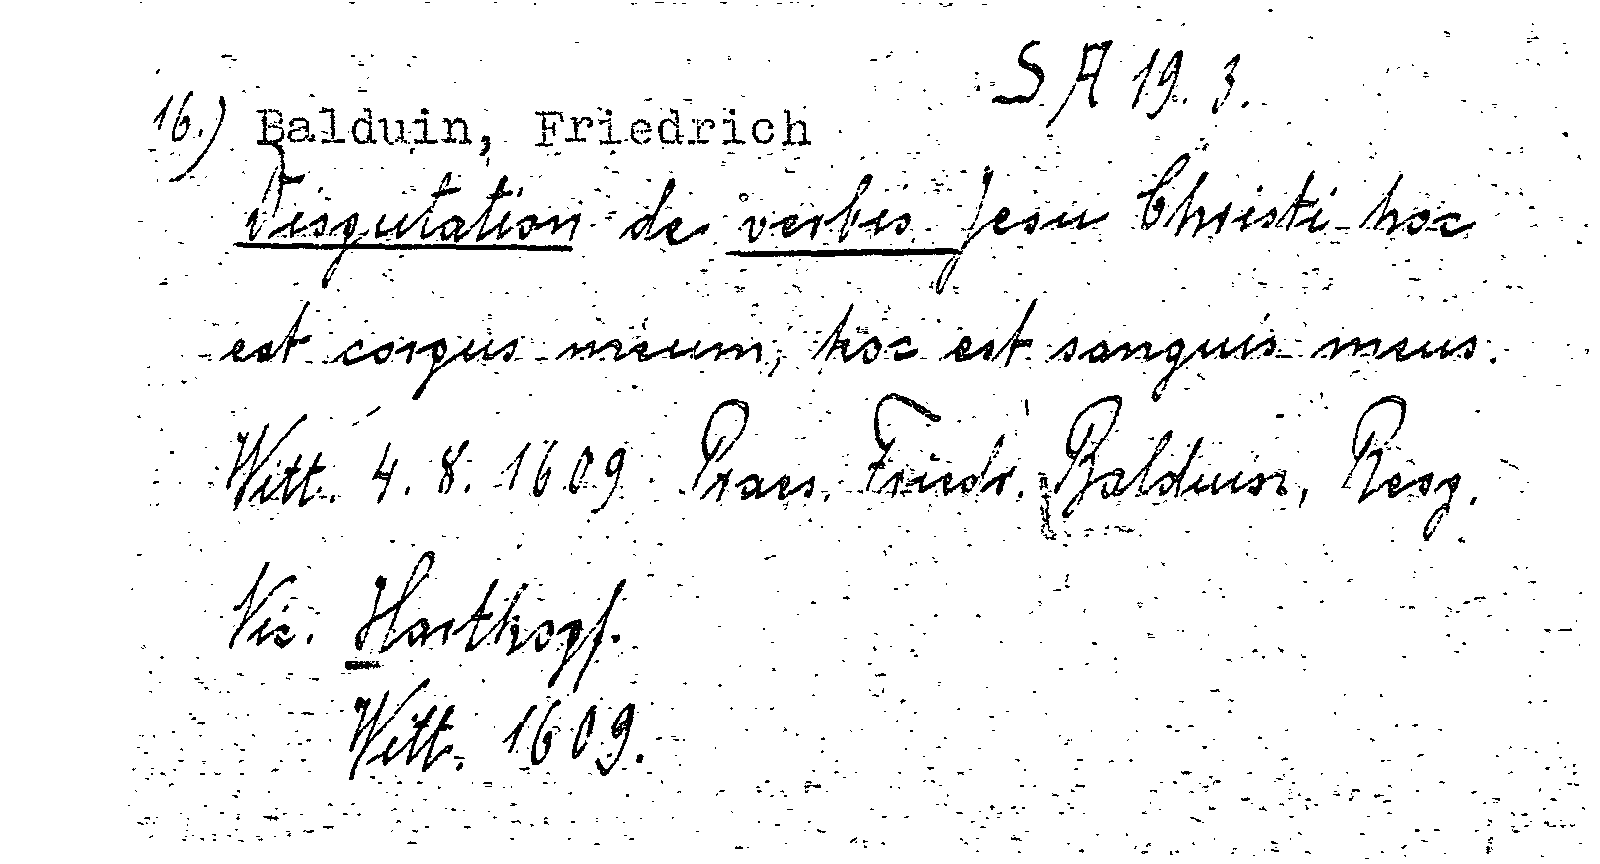 SA 19. 3.
16.) Balduin, Friedrich
Disputation de verbis Jesu Christi hoc
est corpus meum, hoc est sanguis meus.
Witt. 4. 8. 1609. Praes. Friedr. Balduin, Resp.
Nic. Hartkopf.
Witt. 1609.